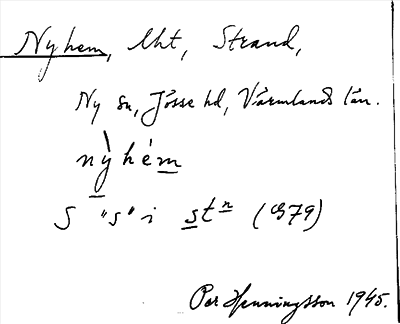 Nyhem, lht, Strand,
Ny sn, Jösse hd, Värmlands län.
nỳhém
S "s" i stⁿ (G79)
Per Henningsson 1945.